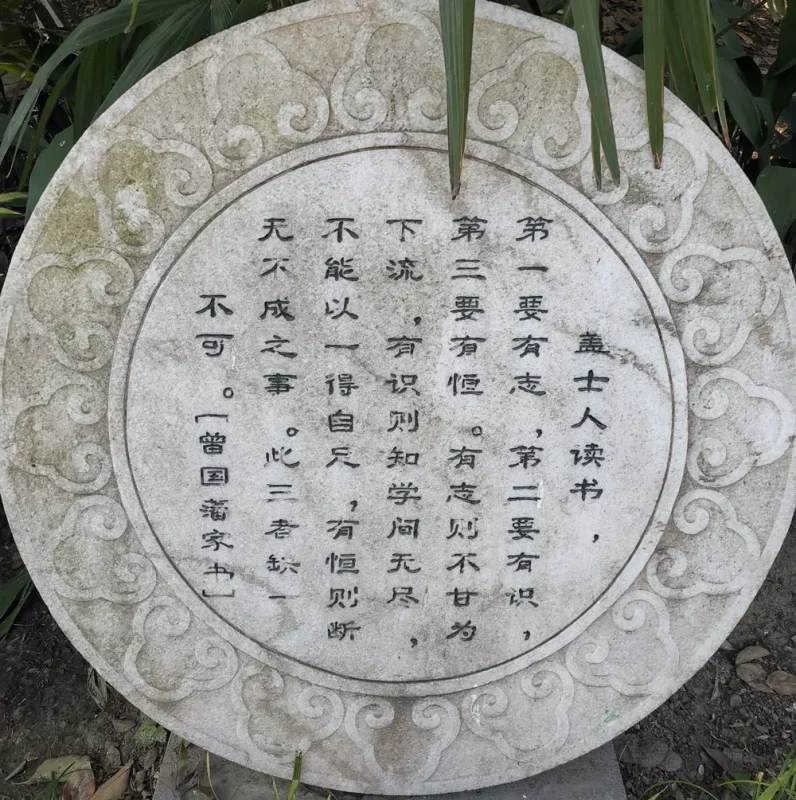 盖士人读书，
第一要有志，第二要有识，
第三要有恒。有志则不甘为
下流，有识则知学问无尽，
不能以一得自足，有恒则断
无不成之事。此三者缺一
不可。[曾国藩家书]